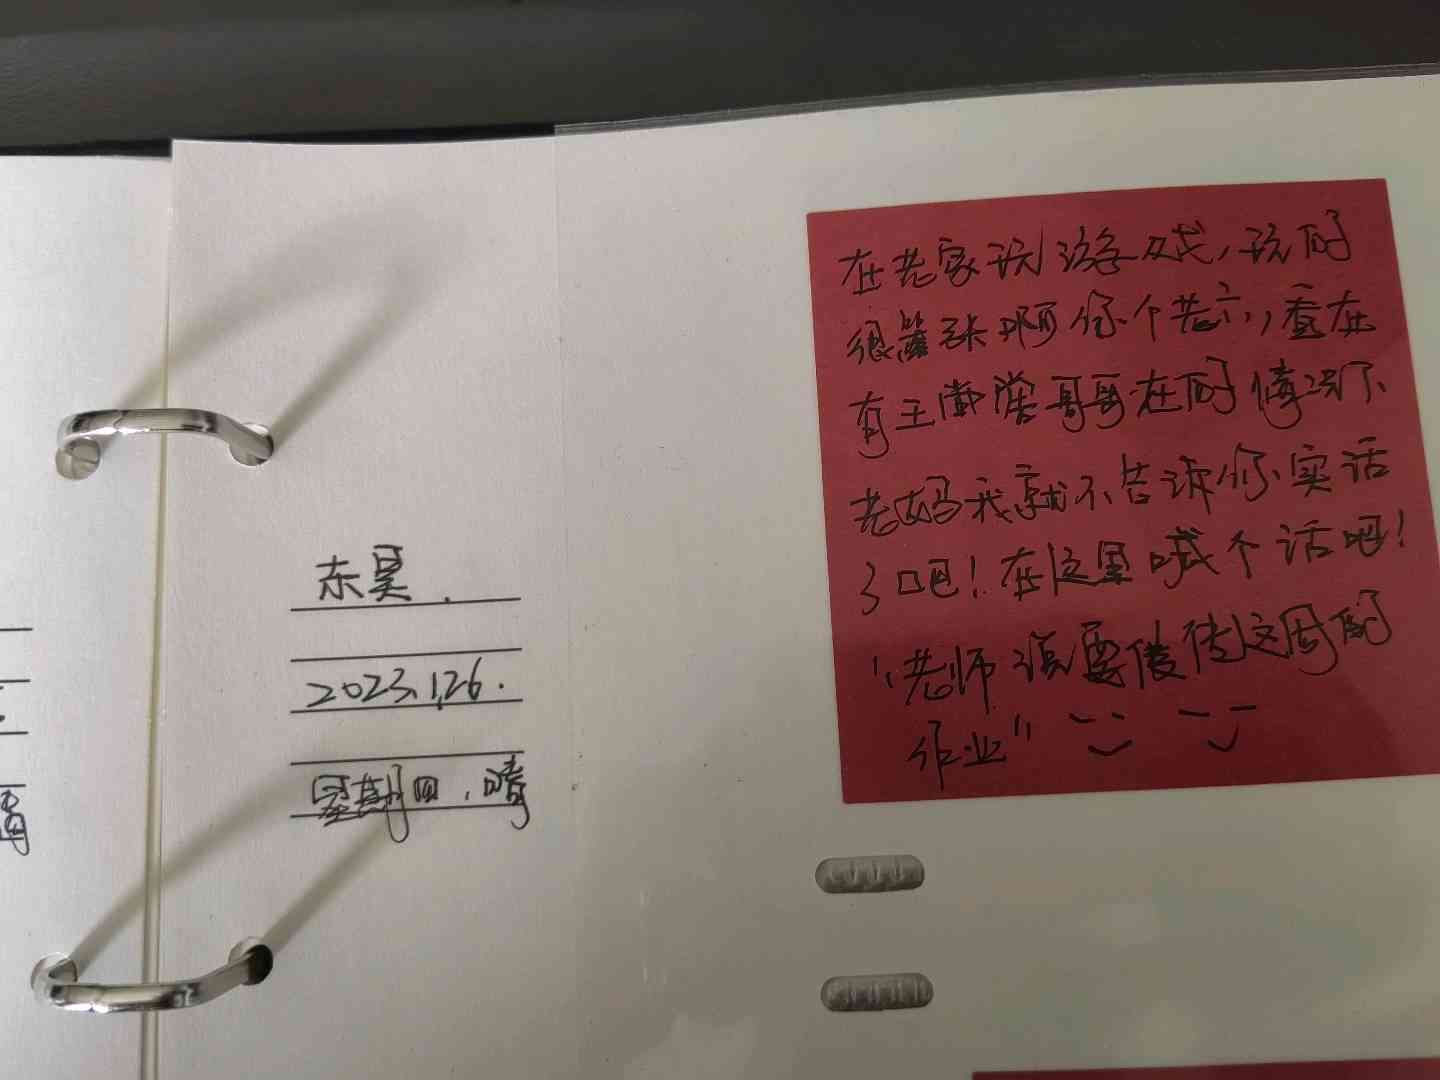 东昊.
2023.1.26.
星期四.晴
在老家玩游戏,玩的
很嚣张啊你个老六,看在
有王萧棠哥哥在的情况下
老妈我就不告诉你实话
了吧!在这里喊个话吧!
"老师说要偻传这周的
作业"